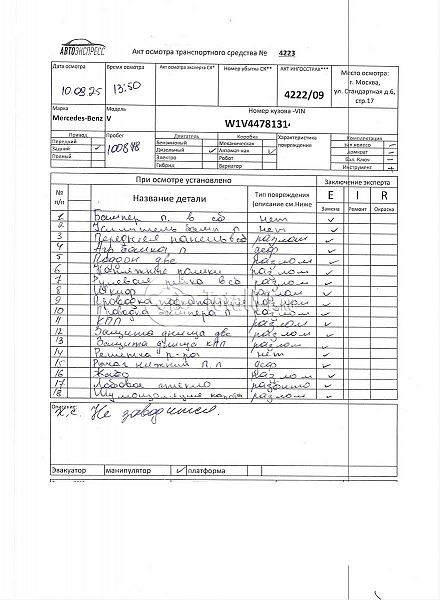 АВТОЭКСПРЕСС
Акт осмотра транспортного средства № 4223
Дата осмотра
Время осмотра
Акт осмотра эксперта СК*
Номер убытка СК**
АКТ ИНГОССТРАХ***
Место осмотра:
10.08.25
13:50
4222/09
г. Москва,
ул. Стандартная д.6,
стр.17
Марка
Модель
Номер кузова -VIN
Mercedes-Benz
V
W1V4478131
Привод
Пробег
Двигатель
Коробка
Характеристика
повреждения
Комплектация
Передний
100848
Бензиновый
Механическая
Задний ✓
Дизельный ✓
Автомат ная ✓
домкрат -
Полный
Электро
Робот
бал. Ключ -
Гибрид
Вариатор
Инструмент +
При осмотре установлено
Заключение эксперта
№ п/п
Название детали
Тип повреждения
(описание см.Ниже
E I R
Замена Ремонт Окраска
1 Бампер п. в сб нет ✓
2 Усилитель бамп п нет ✓
3 Передняя панель в сб разлом ✓
4 деф ✓
5 две разлом ✓
6 разлом ✓
7 Рулевая рейка в сб разлом ✓
8 Шкиф разлом ✓
9 Проводка разлом ✓
10 Проводка бампера п разлом ✓
11 КПП разлом ✓
12 Защита днища две разлом ✓
13 Защита днища КПП разлом ✓
14 Решетка нет ✓
15 Рычаг нижний П. деф ✓
16 разлом ✓
17 Лобовое стекло разбито ✓
18 Шумоизоляция капота разлом ✓
Описание:
Х.С. Не заводится.
Эвакуатор
манипулятор
✓ платформа